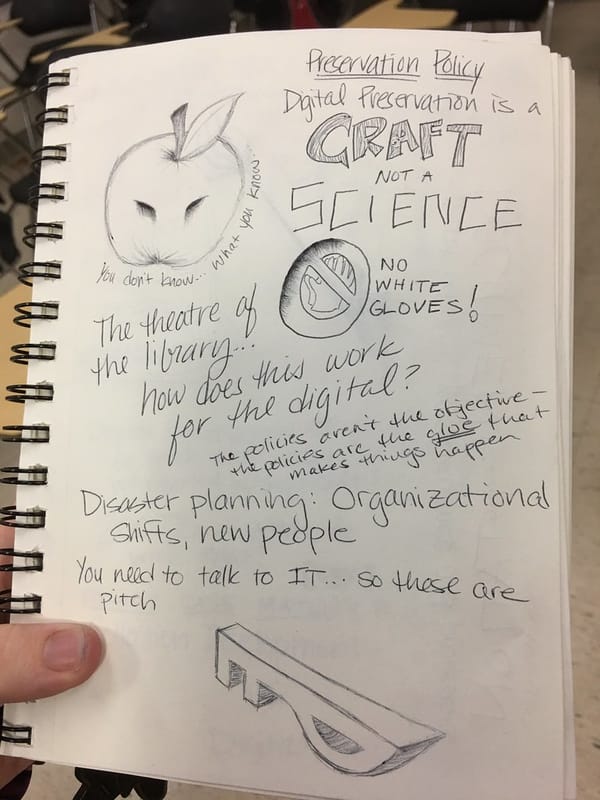 Preservation Policy
Digital Preservation is a
CRAFT
NOT A
SCIENCE
You don't know... what you know...
NO
WHITE
GLOVES!
The theatre of
the library...
how does this work
for the digital?
The policies aren't the objective -
the policies are the glue that
makes things happen
Disaster planning: Organizational
shifts, new people
You need to talk to IT... so these are
pitch